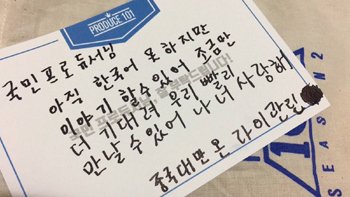 PRODUCE 101
국민 프로듀서님
아직 한국어 못하지만
이야기 할수있어 잠만
더 기대려 우리 빨리
만날 수 있어 나 너 사랑해
중국대만 온 라이관린
SEASON2